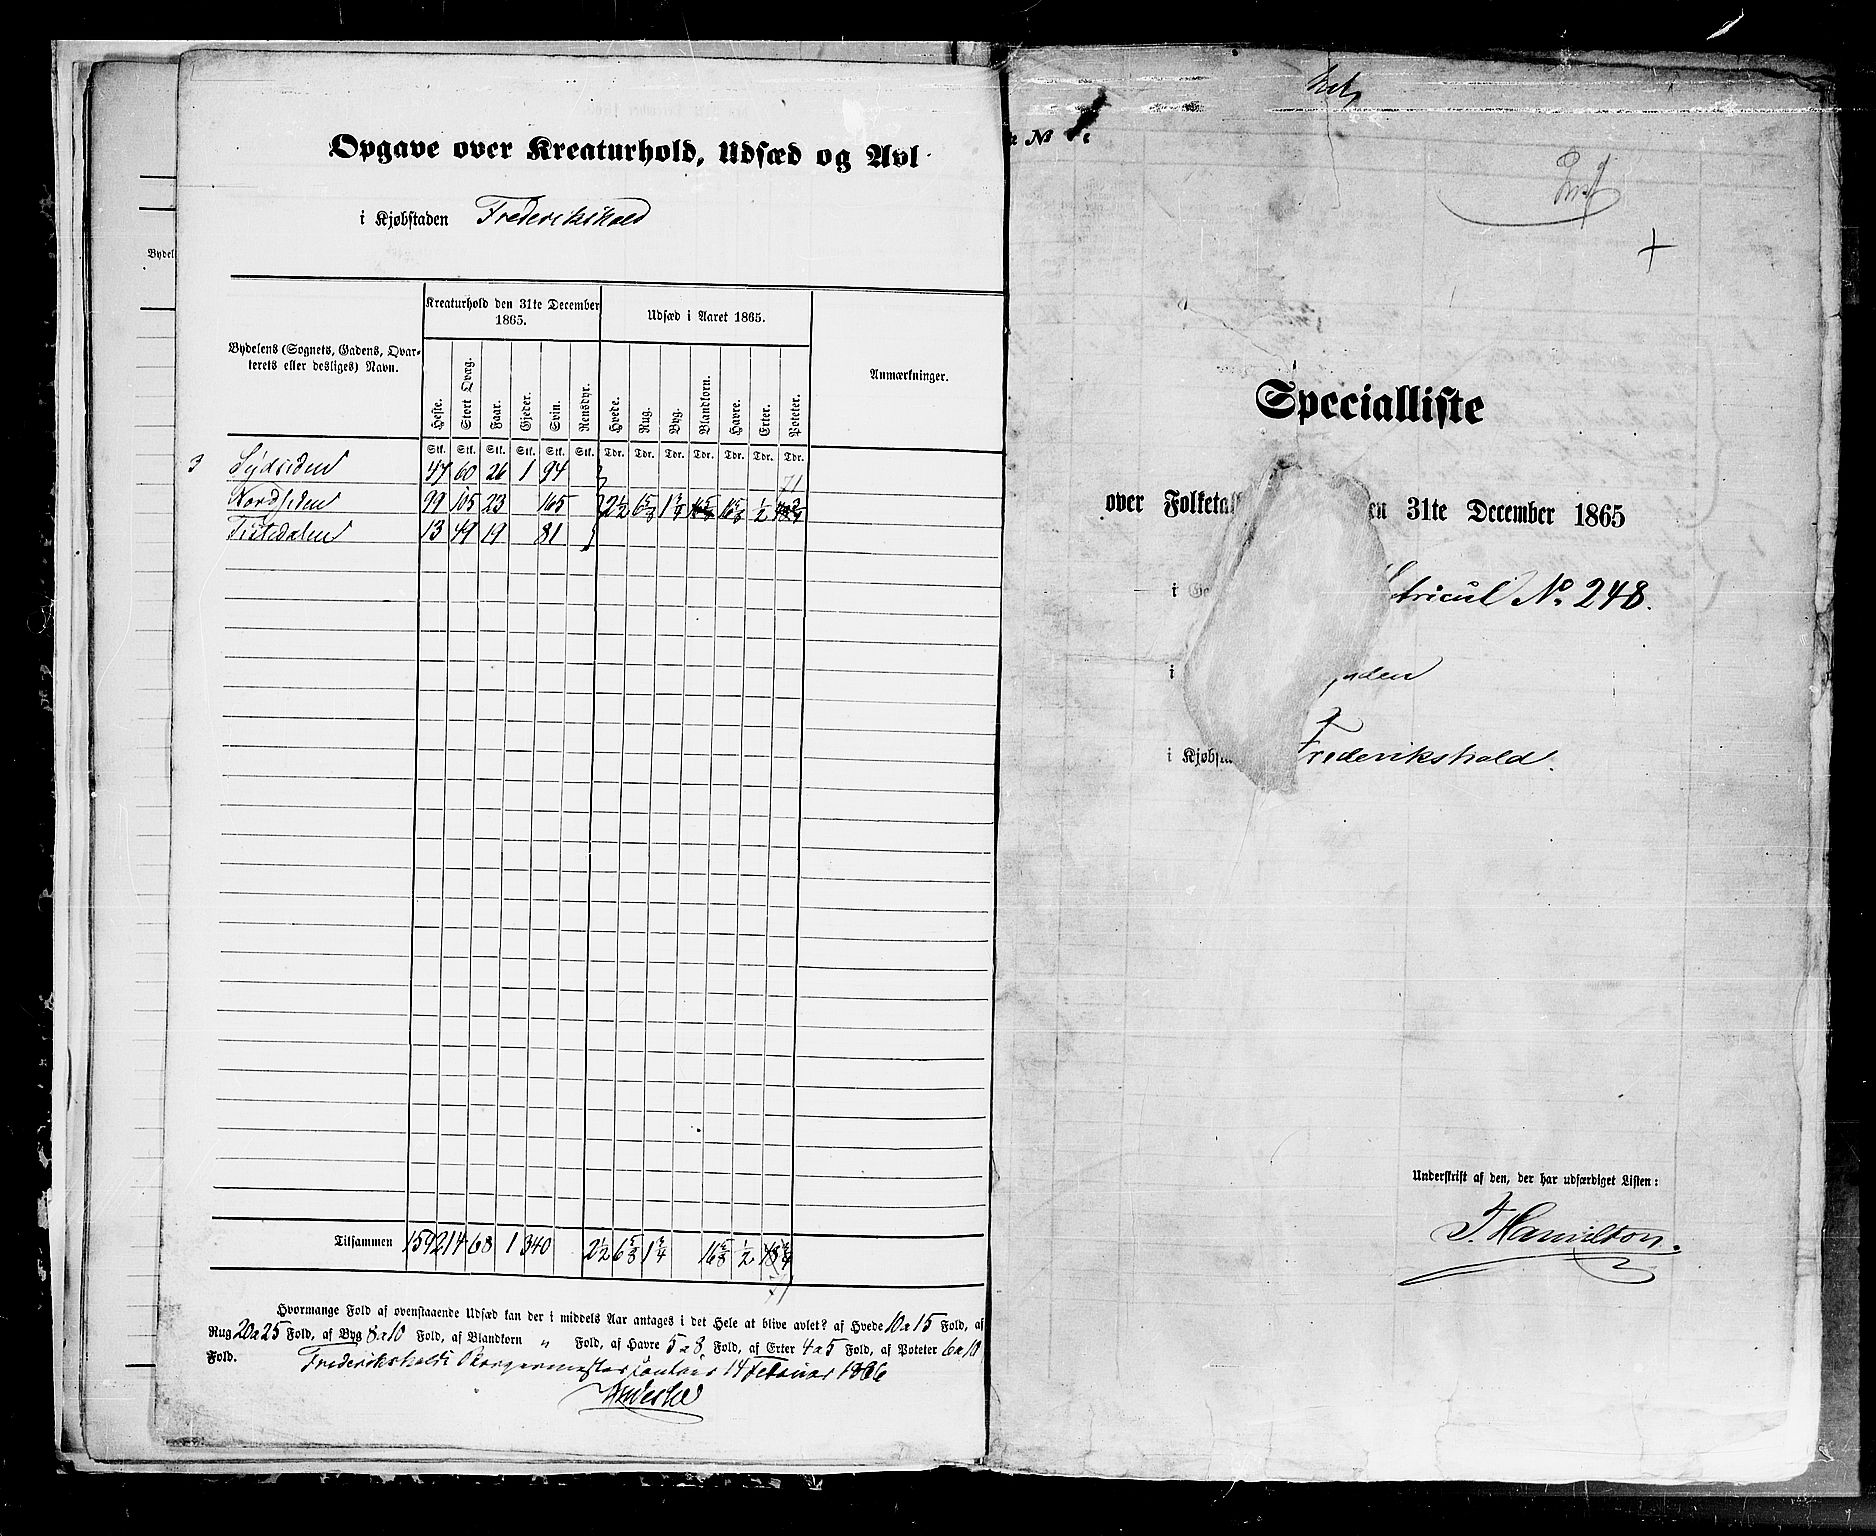 Opgave over Kreaturhold, Udsæd og Avl
i Kjøbstaden Frederikshald
Bydelens (Sognets, Gadens, Qvarterets eller desliges) Navn.
Kreaturhold den 31te December 1865.
Udsæd i Aaret 1865.
Anmærkninger.
Heste. Stort Qvæg. Faar. Gjeder. Svin. Rensdyr. Hvede. Rug. Byg. Blandkorn. Havre. Erter. Poteter.
Stk. Stk. Stk. Stk. Stk. Stk. Tdr. Tdr. Tdr. Tdr. Tdr. Tdr. Tdr.
3 Sydsiden 47 60 26 1 94
71
Nordsiden 99 105 23 165 2½ 6⅝ 1¾ 16⅝ ½
Tistedalen 13 49 19 81
Tilsammen 159 214 68 1 340 2½ 6⅝ 1¾ 16⅝ ½
71
Hvormange Fold af ovenstaaende Udsæd kan der i middels Aar antages i det Hele at blive avlet? af Hvede 10 a 15 Fold, af
Rug 20 a 25 Fold, af Byg 8 a 10 Fold, af Blandkorn " Fold, af Havre 5 a 8 Fold, af Erter 4 a 5 Fold, af Poteter 6 a 10
Fold.
Frederikshalds 14 Februar 1866
Bydel
No
Specialliste
over Folketal en 31te December 1865
i tricul No. 248.
i
i Kjøbst Frederikshald.
Underskrift af den, der har udfærdiget Listen:
J. Hamilton.